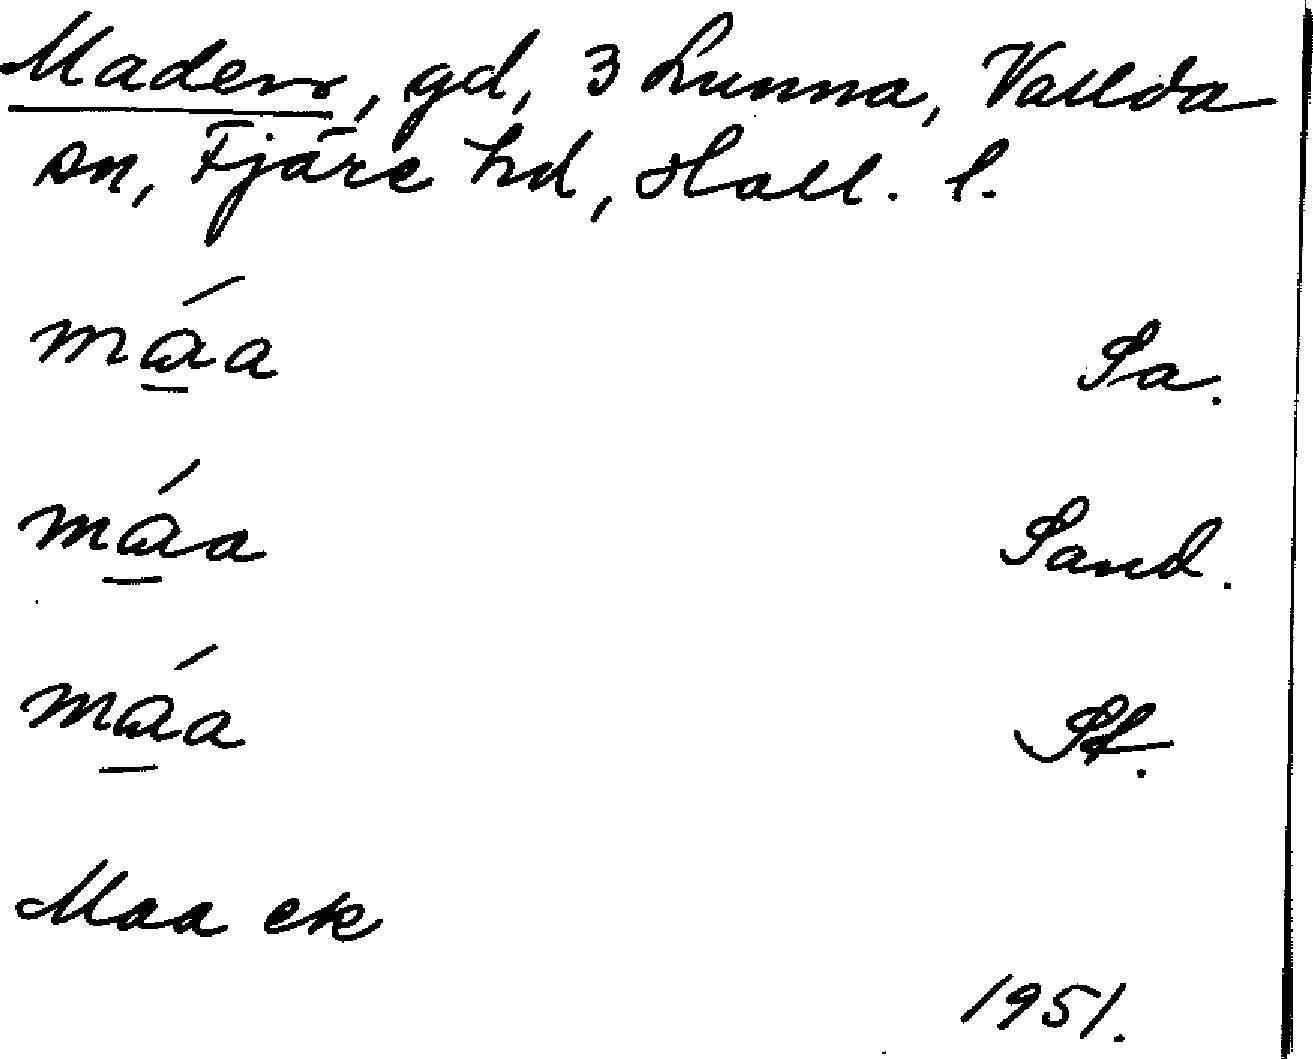 Maden, gd, 3 Lunna, Vallda
sn, Fjäre hd, Hall. l.
má̱a Sa.
má̱a Sand.
má̱a St.
Maa ek
1951.